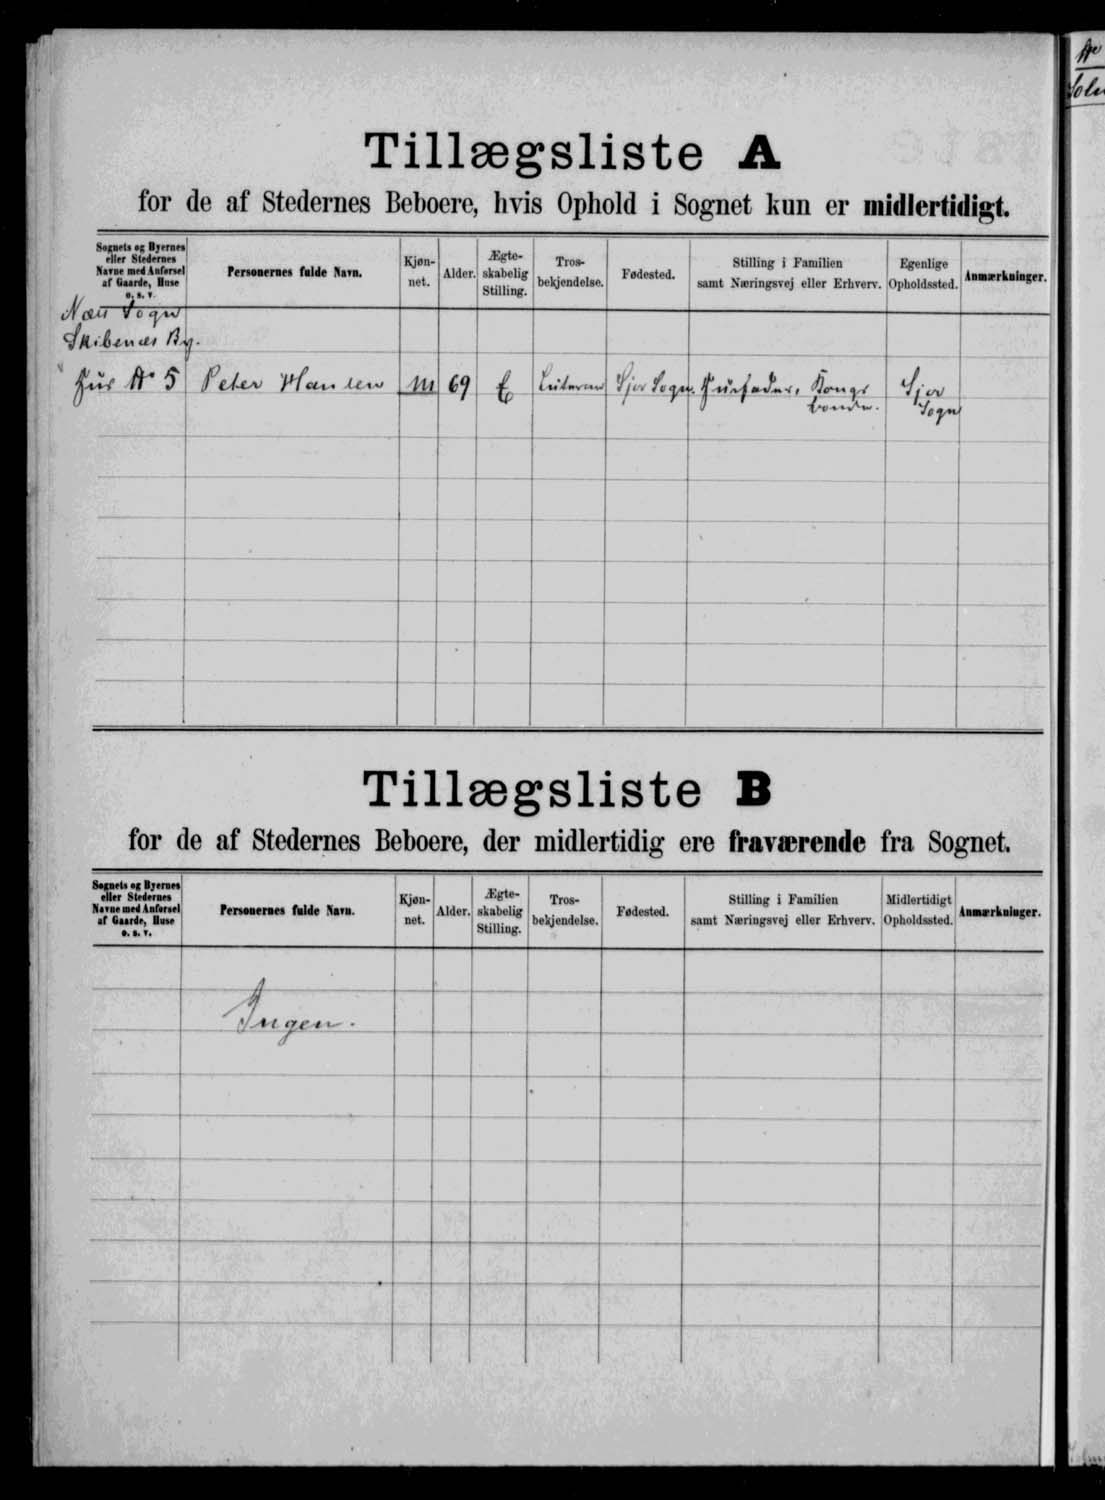 Tillægsliste A
for de af Stedernes Beboere, hvis Ophold i Sognet kun er midlertidigt.
Sognets og Byernes eller Stedernes Navne med Anførsel af Gaarde, Huse o. s. v.
Personernes fulde Navn.
Kjøn-net.
Alder.
Ægte-skabelig Stilling.
Tros-bekjendelse.
Fødested.
Stilling i Familien samt Næringsvej eller Erhverv.
Egenlige Opholdssted.
Anmærkninger.
Næs Sogn
Skibenæs By.
Hus No 5 Peter Hansen M 69 E Luteraner Sjov Sogn. Husfader, Kongs Sjov
bonde. Sogn
Tillægsliste B
for de af Stedernes Beboere, der midlertidig ere fraværende fra Sognet.
Sognets og Byernes eller Stedernes Navne med Anførsel af Gaarde, Huse o. s. v.
Personernes fulde Navn.
Kjøn-net.
Alder.
Ægte-skabelig Stilling.
Tros-bekjendelse.
Fødested.
Stilling i Familien samt Næringsvej eller Erhverv.
Midlertidigt Opholdssted.
Anmærkninger.
Ingen.